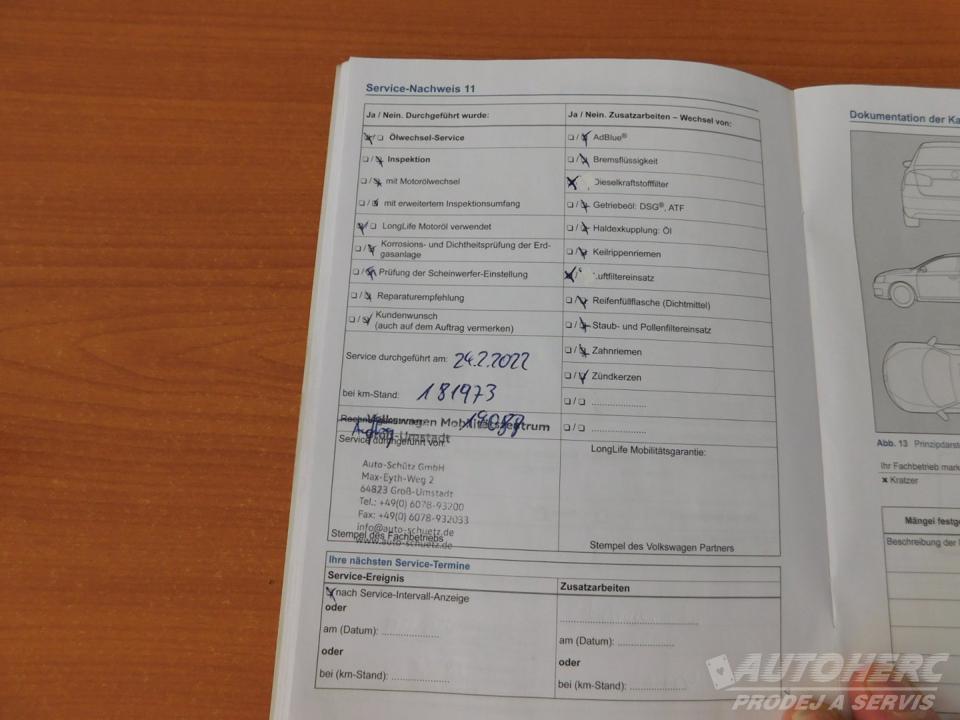 Service-Nachweis 11
Ja / Nein. Durchgeführt wurde:
Ölwechsel-Service
Inspektion
mit Motorölwechsel
mit erweitertem Inspektionsumfang
LongLife Motoröl verwendet
Korrosions- und Dichtheitsprüfung der Erd-
gasanlage
Prüfung der Scheinwerfer-Einstellung
Reparaturempfehlung
Kundenwunsch
(auch auf dem Auftrag vermerken)
Service durchgeführt am: 24.2.2022
bei km-Stand: 181973
Volkswagen Mobilitätszentrum
Groß-Umstadt
Service durchgeführt von:
Auto-Schütz GmbH
Max-Eyth-Weg 2
64823 Groß-Umstadt
Tel.: +49(0) 6078-93200
Fax: +49(0) 6078-932033
info@auto-schuetz.de
www.auto-schuetz.de
Stempel des Fachbetriebs
Ja / Nein. Zusatzarbeiten – Wechsel von:
AdBlue®
Bremsflüssigkeit
Dieselkraftstofffilter
Getriebeöl: DSG®, ATF
Haldexkupplung: Öl
Keilrippenriemen
Luftfiltereinsatz
Reifenfüllflasche (Dichtmittel)
Staub- und Pollenfiltereinsatz
Zahnriemen
Zündkerzen
LongLife Mobilitätsgarantie:
Stempel des Volkswagen Partners
Ihre nächsten Service-Termine
Service-Ereignis
nach Service-Intervall-Anzeige
oder
am (Datum):
oder
bei (km-Stand):
Zusatzarbeiten
am (Datum):
oder
bei (km-Stand):
Dokumentation der Ka
Abb. 13 Prinzipdarst
Ihr Fachbetrieb mark
x Kratzer
Mängel festge
Beschreibung der
AUTOHERC
PRODEJ A SERVIS